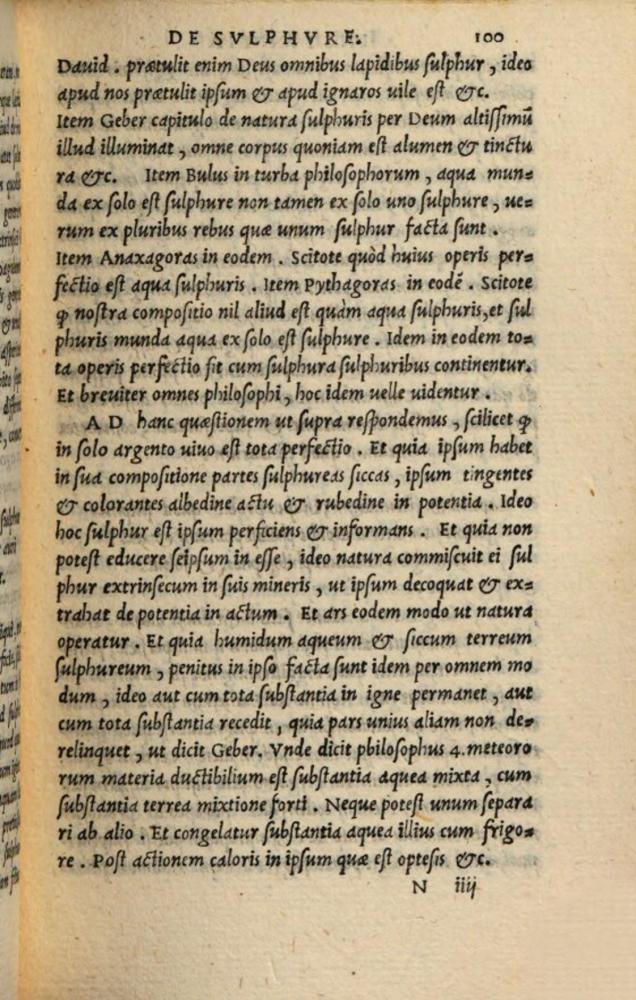 DE SVLPHVRE. 100
Dauid . prætulit enim Deus omnibus lapidibus ſulphur , ideo
apud nos prætulit ipſum & apud ignaros uile eſt &c.
Item Geber capitulo de natura ſulphuris per Deum altiſſimũ
illud illuminat , omne corpus quoniam est alumen & tinctu
ra &c. Item Bulus in turba philoſophorum , aqua mun=
da ex ſolo eſt ſulphure non tamen ex ſolo uno ſulphure , ue=
rum ex pluribus rebus quæ unum ſulphur facta ſunt .
Item Anaxagoras in eodem . Scitote quòd huius operis per=
fectio eſt aqua ſulphuris . Item Pythagoras in eodẽ . Scitote
ꝙ noſtra compoſitio nil aliud eſt quàm aqua ſulphuris,et ſul
phuris munda aqua ex ſolo eſt ſulphure . Idem in eodem to=
ta operis perfectio fit cum ſulphura ſulphuribus continentur.
Et breuiter omnes philoſophi , hoc idem uelle uidentur .
A D hanc quæſtionem ut ſupra reſpondemus , ſcilicet ꝙ
in ſolo argento uiuo eſt tota perfectio . Et quia ipſum habet
in ſua compoſitione partes ſulphureas ſiccas , ipſum tingentes
& colorantes albedine actu & rubedine in potentia . Ideo
hoc ſulphur eſt ipſum perficiens & informans . Et quia non
poteſt educere ſeipſum in eſſe , ideo natura commiſcuit ei ſul
phur extrinſecum in ſuis mineris , ut ipſum decoquat & ex=
trahat de potentia in actum . Et ars eodem modo ut natura
operatur . Et quia humidum aqueum & ſiccum terreum
ſulphureum , penitus in ipſo facta ſunt idem per omnem mo
dum , ideo aut cum tota ſubſtantia in igne permanet , aut
cum tota ſubſtantia recedit , quia pars unius aliam non de=
relinquet , ut dicit Geber. Vnde dicit philoſophus 4. meteoro
rum materia ductibilium eſt ſubſtantia aquea mixta , cum
ſubſtantia terrea mixtione forti . Neque poteſt unum ſepara
ri ab alio . Et congelatur ſubſtantia aquea illius cum frigo=
re . Poſt actionem caloris in ipſum quæ eſt opteſis &c.
N iiij